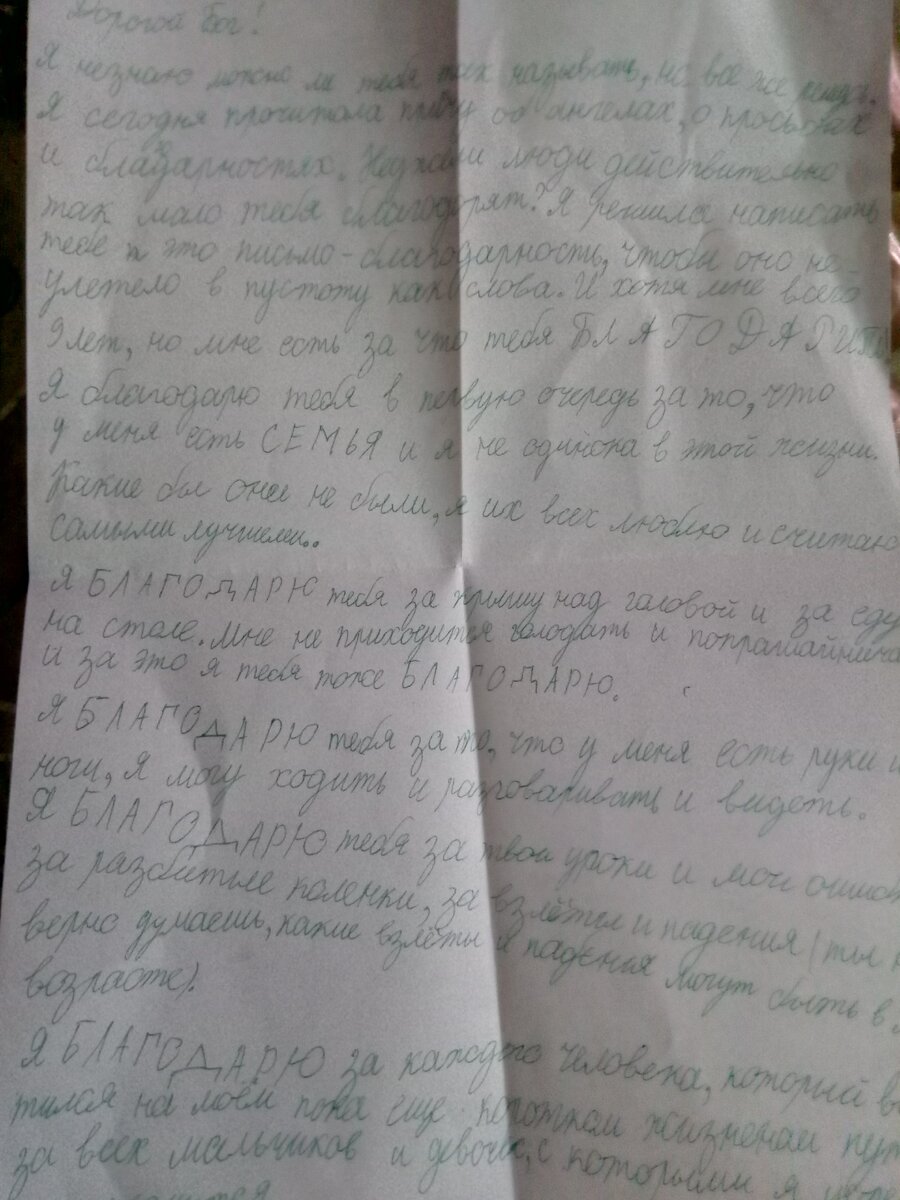 Дорогой Бог!
Я незнаю можно ли тебя так называть, но все же
Я сегодня прочитала притчу об ангелах, о просьбах
и благодарностях. Неужели люди действительно
так мало тебя благодорят? Я решила написать
тебе это письмо-благодарность, чтобы оно не
улетело в пустоту как слова. И хотя мне всего
9 лет, но мне есть за что тебя БЛАГОДАРИТЬ
Я благодарю тебя в первую очередь за то, что
у меня есть СЕМЬЯ и я не одинока в этой жизни.
Какие бы они не были, я их всех люблю и считаю
самыми лучшими..
Я БЛАГОДАРЮ тебя за крышу над головой и за еду
на столе. Мне не приходится голодать и попрашайнича
и за это я тебя тоже БЛАГОДАРЮ.
Я БЛАГОДАРЮ тебя за то, что у меня есть руки и
ноги, я могу ходить и разговаривать и видеть.
Я БЛАГОДАРЮ тебя за твои уроки и мои ошиб
за разбитые коленки, за взлёты и падения (ты н
верно думаешь, какие взлёты и падения могут быть в
возрасте).
Я БЛАГОДАРЮ за каждого человека, который в
тился на моём пока еще коротком жизненом пут
за всех мальчиков и девочек, с которыми я